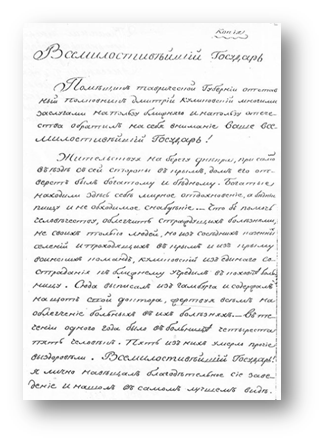 Копія
Всемилостивѣйшій Государь
Помѣщикъ таврической Губерніи отстав
ный полковникъ Дмитрій Куликовскій многими
заслугами на пользу ближнихъ и на пользу отече
ства обратилъ на себя вниманіе Ваше все
милостивѣйшій Государь!
Жительствуя на берегу Днепра, при самомъ
въѣздѣ съ сей стороны въ Крымъ, домъ его от
верстъ былъ богатому и бѣдному. Богатые
находили здѣсь себѣ мирное отдохновеніе, а бѣдные
пищу и необходимое снабженіе. Что въ помощь
человѣчеству, облегчить страждущихъ болѣзнями,
не своихъ только людей, но изъ соседнихъ
селеній и проходящихъ въ Крымъ и изъ Крыму
воинскихъ командъ, Куликовскій изъ единаго со
страданія къ ближнему учредилъ въ боль
ницу. Сюда выписалъ изъ Гамбурга и содержалъ
на щотъ свой доктора, жертвуя всѣмъ на
облегченіе больныхъ въ ихъ болѣзняхъ. Въ те
ченіи одного года было въ больницѣ четыреста
пять человѣкъ. Пять изъ нихъ умерло прочіе
выздоровели. Всемилостивѣйшій Государь!
я лично навѣщала благодѣтельное сіе заве
деніе и нашла въ самомъ лучшемъ видѣ.